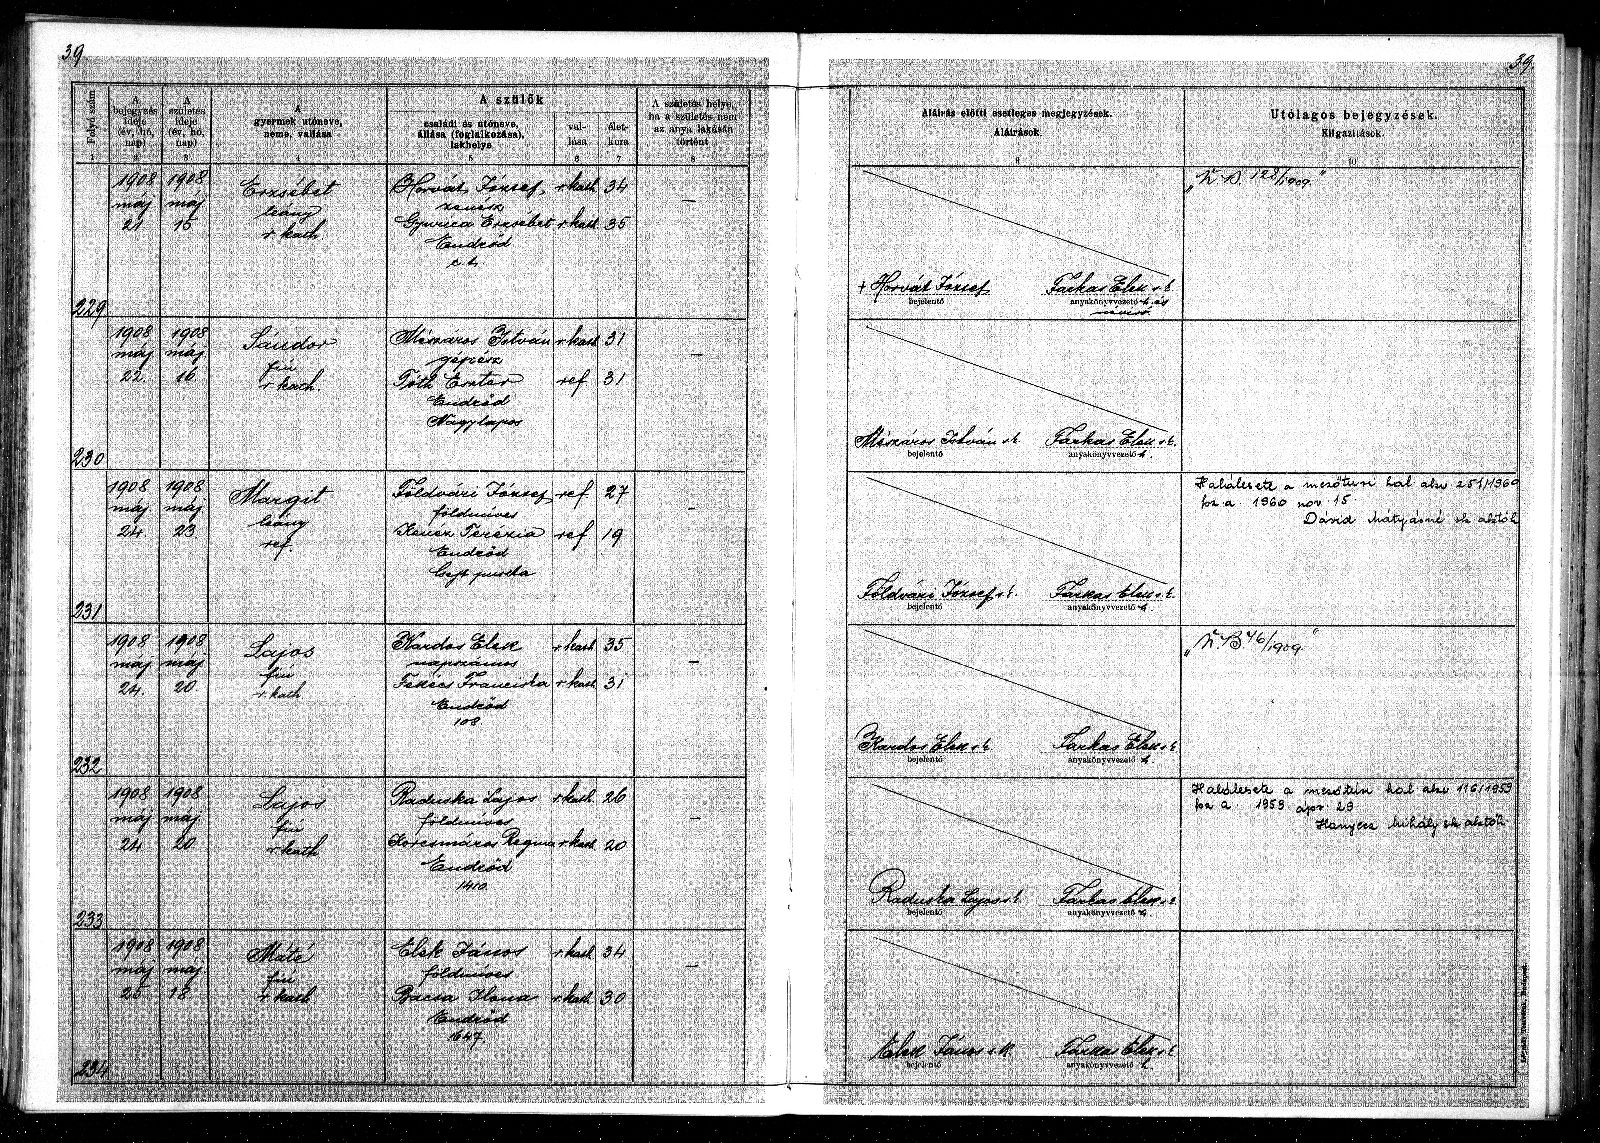 39
39.
Folyó szám
A bejegyzés ideje (év, hó, nap)
A születés ideje (év, hó, nap)
A gyermek utóneve, neme, vallása
A szülők
családi és utóneve, állása (foglalkozása), lakhelye
vallása
életkora
A születés helye, ha a születés nem az anya lakásán történt
Aláírás előtti esetleges megjegyzések.
Aláírások.
Utólagos bejegyzések.
Kiigazítások.
1 2 3 4 5 6 7 8 9 10
1908 1908 Erzsébet Horvát József r. kath 34
máj máj leány zenész —
21 15 r. kath Gyurica Erzsébet r. kath 35
Endrőd
229
+ Horvát József Farkas Elek s.k.
bejelentő anyakönyvvezető h. és
névíró
1908 1908 Sándor Mészáros István r. kath 31
máj máj fiú gépész —
22 16 r. kath. Tóth Eszter ref 31
Endrőd
Nagylapos
230
Mészáros István s.k. Farkas Elek s.k.
bejelentő anyakönyvvezető h.
1908 1908 Margit Földvári József ref 27
máj máj leány földmíves —
24. 23 ref. Terézia ref 19
Endrőd
puszta
231
Földvári József s.k. Farkas Elek s.k.
bejelentő anyakönyvvezető h.
Halálesete a mezőturi hal akv 251/1960
fsz a 1960 nov 15
Dávid Mátyásné sk aktók
1908 1908 Lajos Kardos Elek r. kath 35
máj máj fiú napszámos —
24. 20 r. kath Franciska r. kath 31
Endrőd
108.
232
Kardos Elek s.k. Farkas Elek s.k.
bejelentő anyakönyvvezető h.
1908 1908 Lajos Raduska Lajos r. kath. 26
máj máj. fiú földmíves —
24 20 r. kath Korcsmáros Regina r. kath 20
Endrőd
1410.
233
Raduska Lajos s.k. Farkas Elek s.k.
bejelentő anyakönyvvezető h.
Halálesete a mezőturi hal akv 116/1953
fsz a 1953 ápr 29
Mihály sk aktók
1908 1908 Máté Elek János r. kath 34
máj máj fiú földmíves —
25 18 r. kath Bacsa Ilona r. kath 30
Endrőd
647.
234
Elek János s.k. Farkas Elek s.k.
bejelentő anyakönyvvezető h.